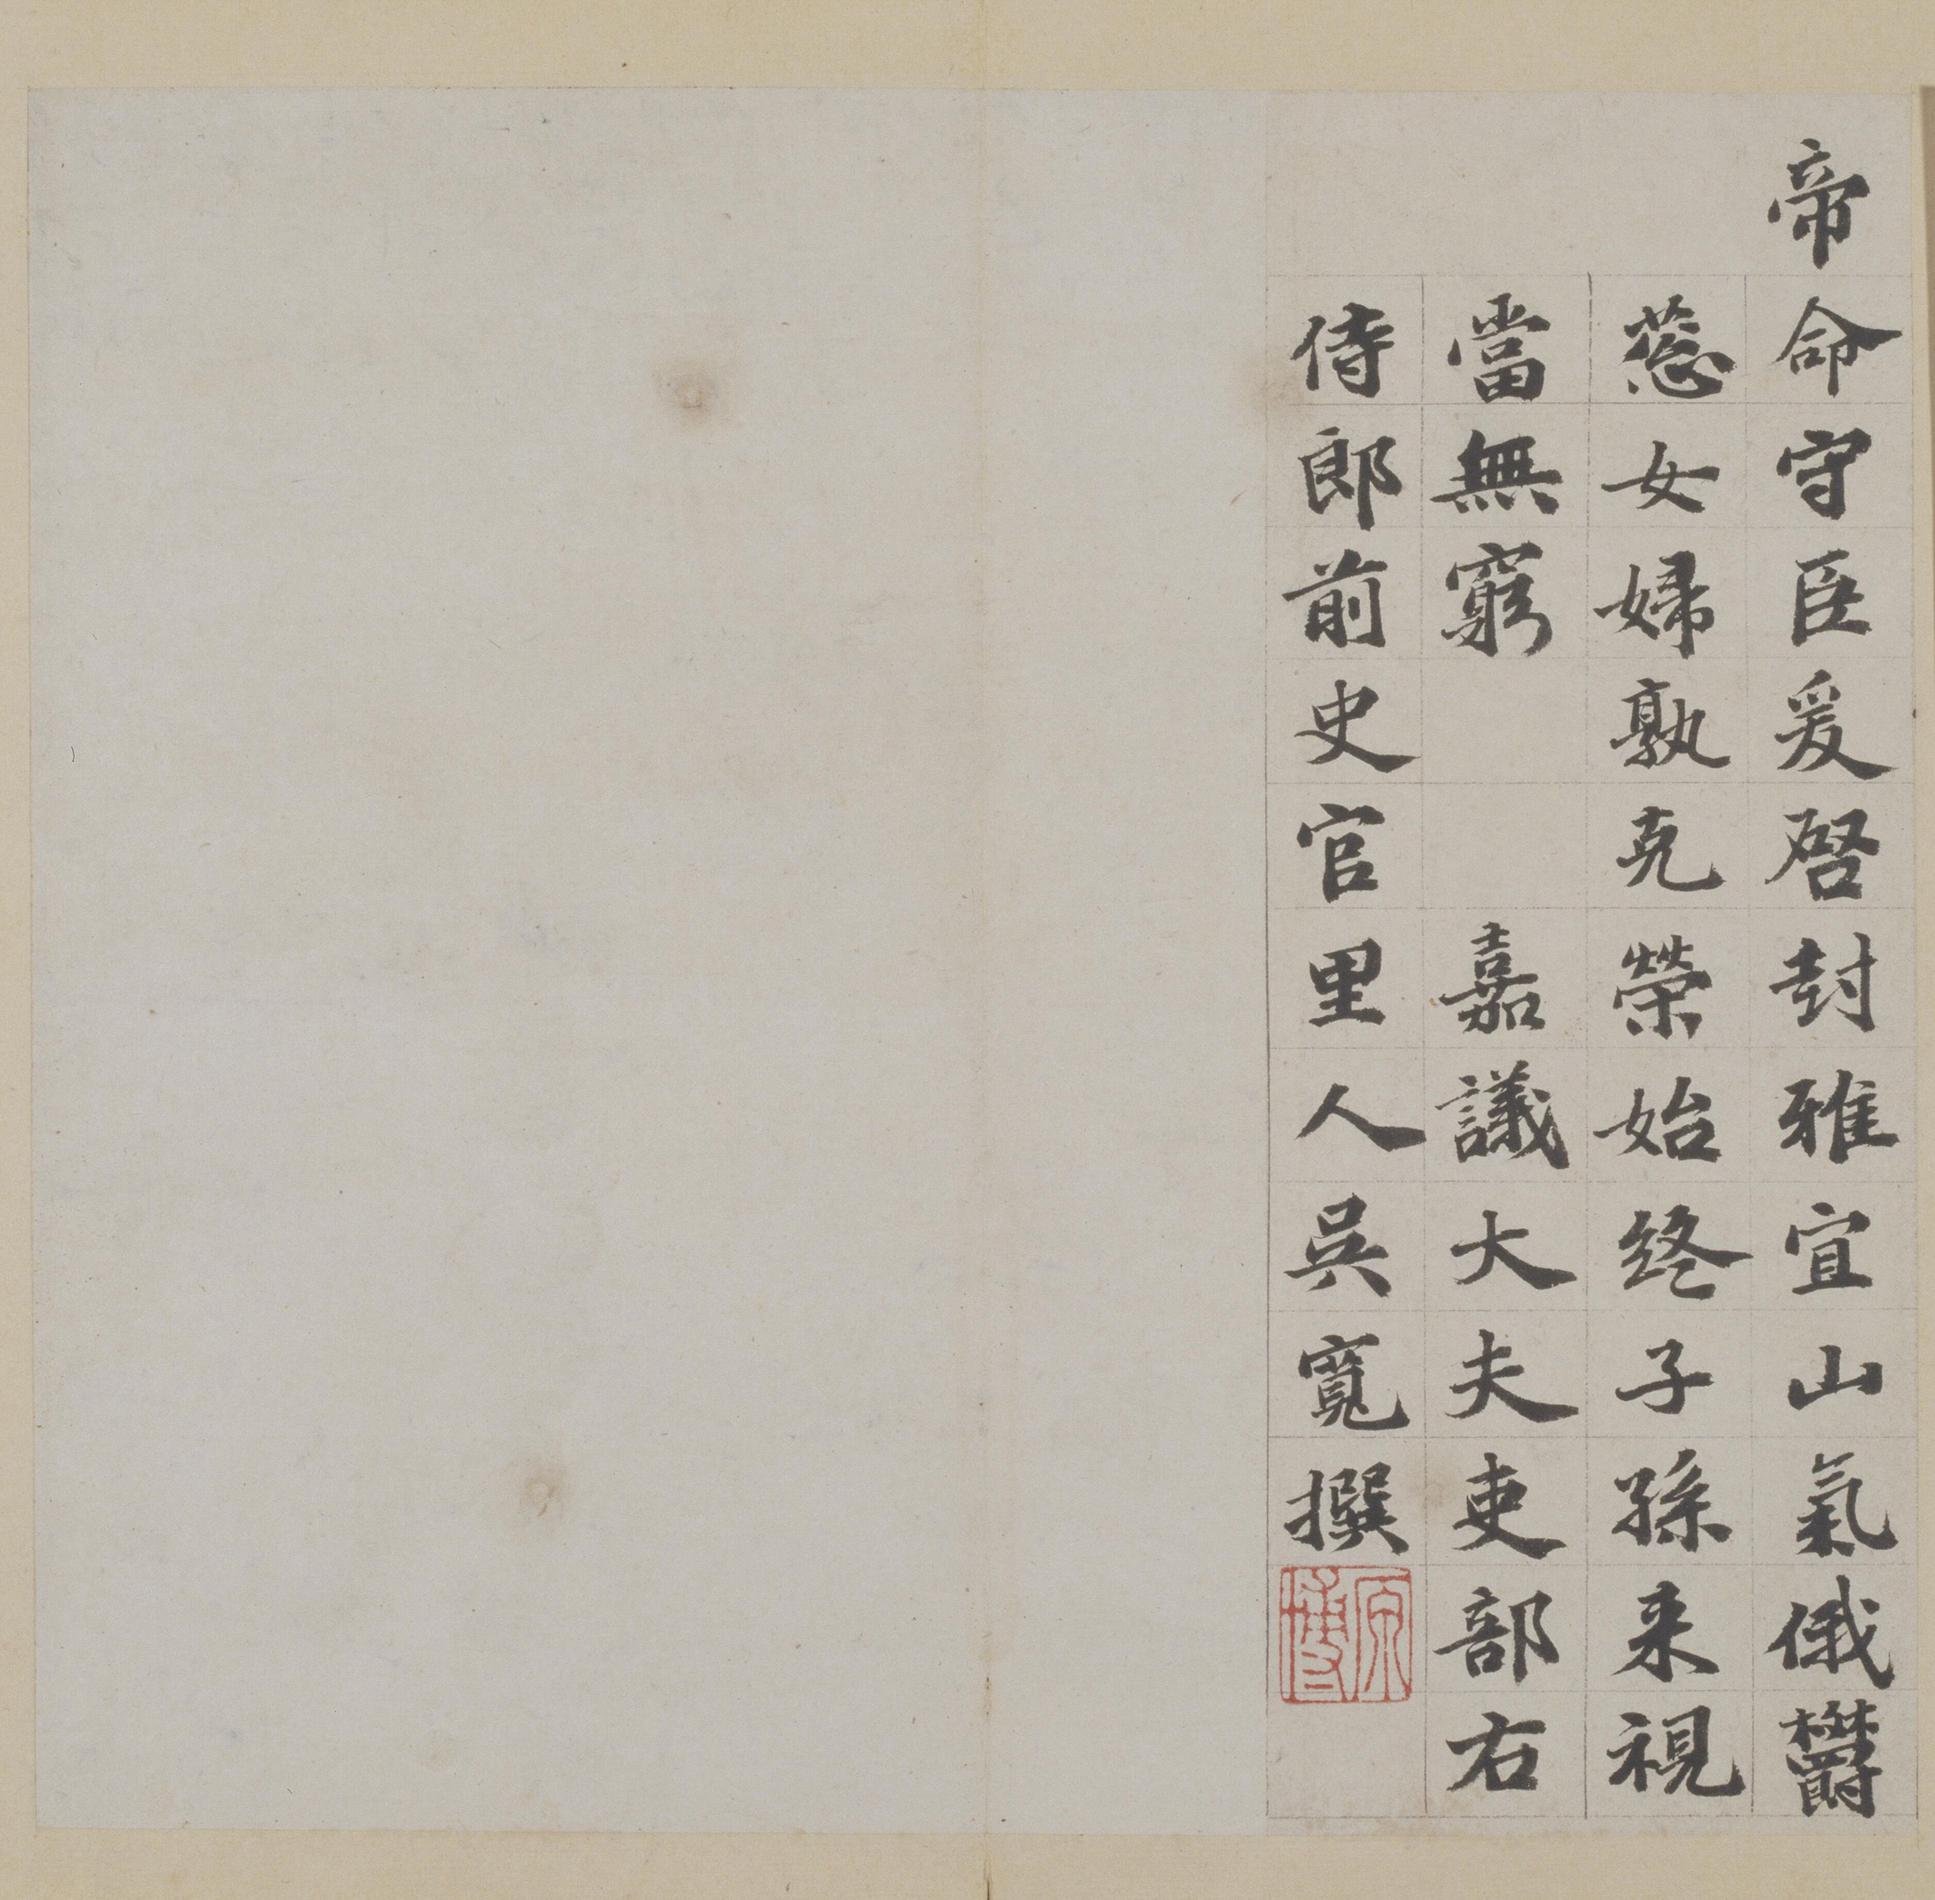 帝命守臣爰啓封雅宜山氣俄欝
蔥女婦孰克榮始終子孫来視
當無窮 嘉議大夫吏部右
侍郎前史官里人吳寬撰
原博